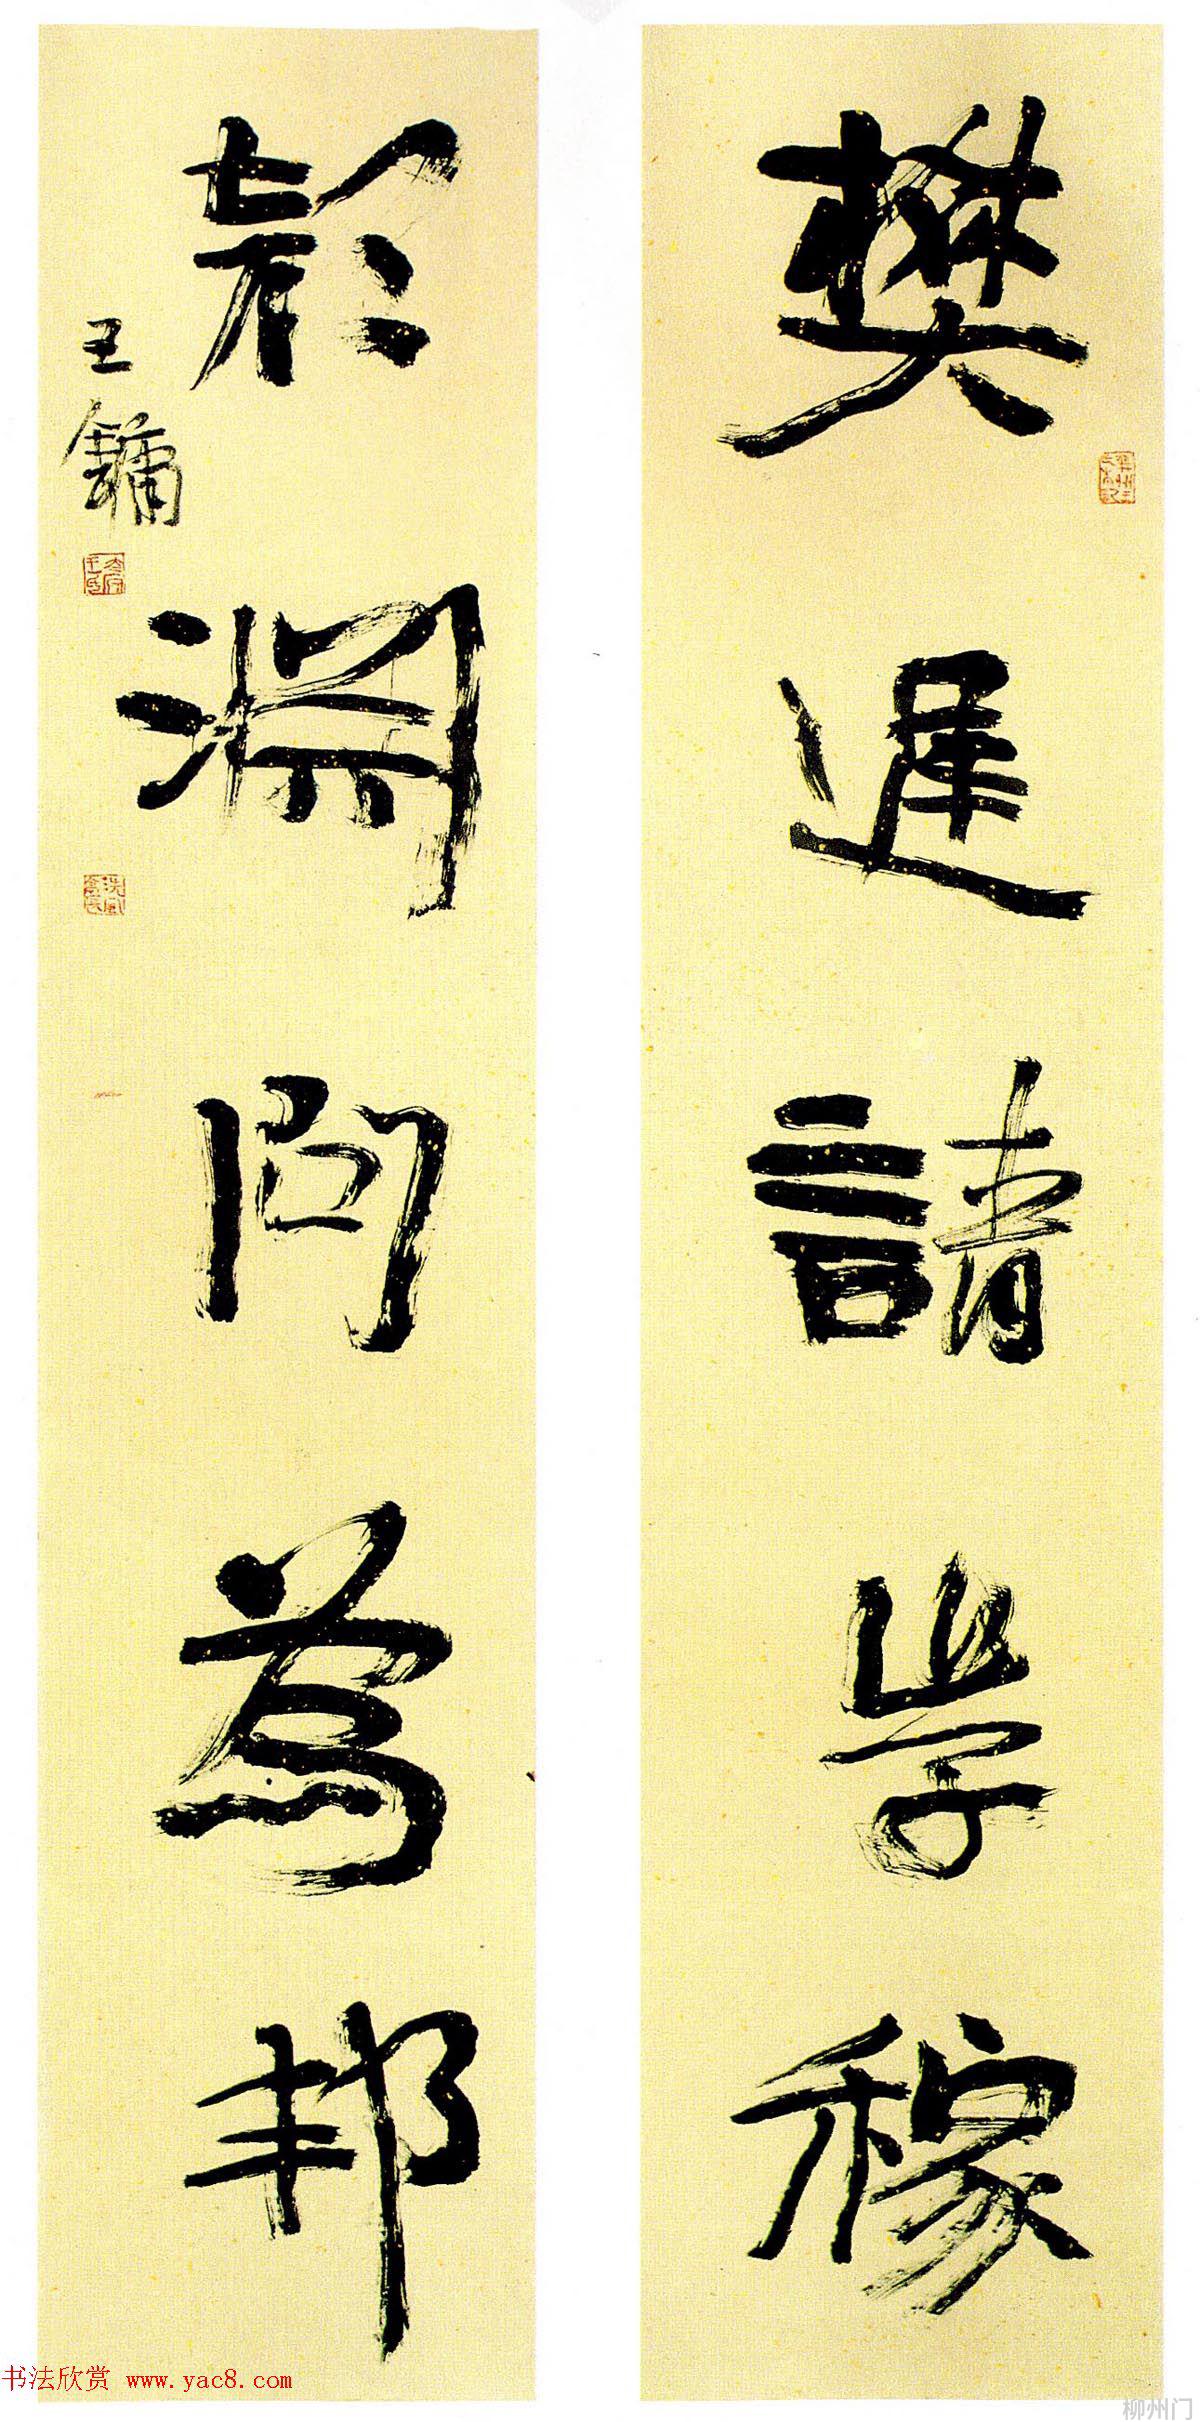 樊遲請學稼
顏淵問為邦
王鏞
书法欣赏 www.yac8.com
柳州门